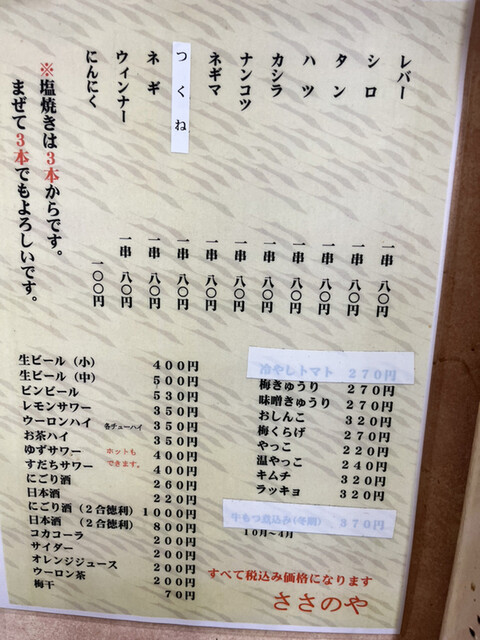 レバー 一串 八〇円
シロ 一串 八〇円
タン 一串 八〇円
ハツ 一串 八〇円
カシラ 一串 八〇円
ナンコツ 一串 八〇円
ネギマ 一串 八〇円
つくね 一串 八〇円
ネギ 一串 八〇円
ウィンナー 一串 八〇円
にんにく 一〇〇円
※塩焼きは3本からです。
まぜて3本でもよろしいです。
生ビール（小） 400円
生ビール（中） 500円
ビンビール 530円
レモンサワー 350円
ウーロンハイ 各チューハイ 350円
お茶ハイ 350円
ゆずサワー ホットも 400円
すだちサワー できます。 400円
にごり酒 260円
日本酒 220円
にごり酒（2合徳利） 1000円
日本酒 （2合徳利） 800円
コカコーラ 200円
サイダー 200円
オレンジジュース 200円
ウーロン茶 200円
梅干 70円
冷やしトマト 270円
梅きゅうり 270円
味噌きゅうり 270円
おしんこ 320円
梅くらげ 270円
やっこ 220円
温やっこ 240円
キムチ 320円
ラッキョ 320円
牛もつ煮込み(冬期) 370円
10月～4月
すべて税込み価格になります
ささのや